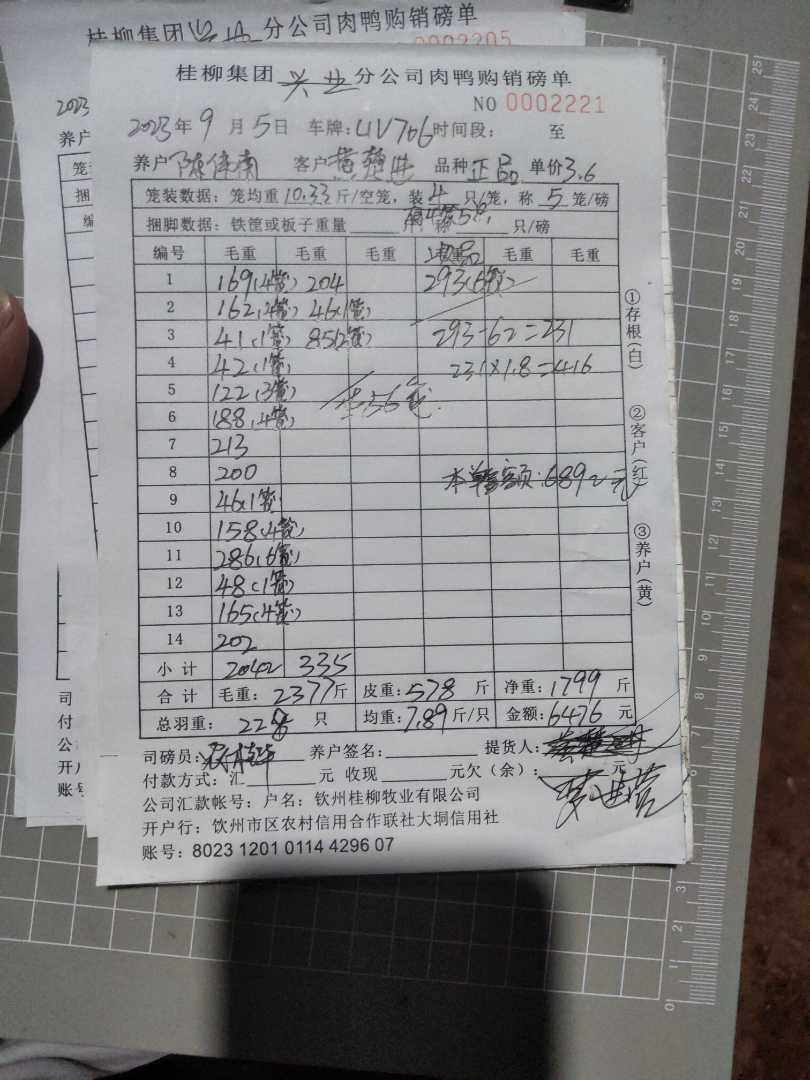 桂柳集团 分公司肉鸭购销磅单
0002205
2023
桂柳集团 兴业 分公司肉鸭购销磅单
NO 0002221
2023年9月5日 车牌: UV706 时间段: 至
养户 陈 客户 黄 品种 正品 单价3.6
笼装数据: 笼均重10.33斤/空笼, 装4只/笼, 称5笼/磅
捆脚数据: 铁筐或板子重量 只/磅
编号 毛重 毛重 毛重 毛重 毛重
1 169(4笼) 204 293(6笼)
2 162(4笼) 46(1笼)
3 41(1笼) 85(2笼) 293-62=231
4 42(1笼) 231×1.8=416
5 122(3笼) 56笼
6 188(4笼)
7 213
8 200 本单 额:6892元
9 46(1笼)
10 158(4笼)
11 286(6笼)
12 48(1笼)
13 165(4笼)
14 202
小计 2042 335
合计 毛重: 2377斤 皮重: 578斤 净重: 1799斤
总羽重: 228只 均重: 7.89斤/只 金额: 6476元
司磅员: 养户签名: 提货人:
付款方式: 汇 元 收现 元欠(余): 元
公司汇款帐号: 户名: 钦州桂柳牧业有限公司
开户行: 钦州市区农村信用合作联社大垌信用社
账号: 8023 1201 0114 4296 07
①存根(白)
②客户(红)
③养户(黄)